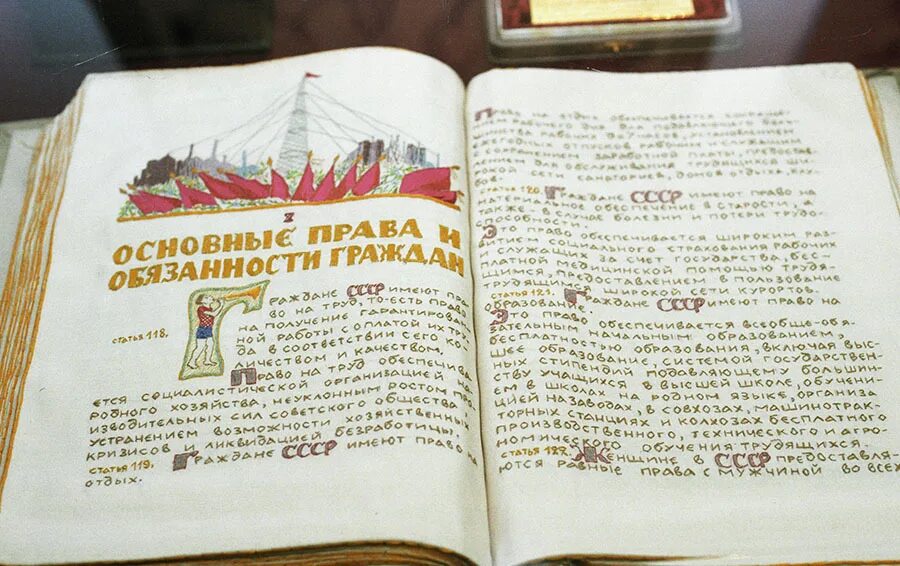 X
ОСНОВНЫЕ ПРАВА И
ОБЯЗАННОСТИ ГРАЖДАН
статья 118.
ГРАЖДАНЕ СССР ИМЕЮТ ПРА-
ВО НА ТРУД, ТО-ЕСТЬ ПРАВО
НА ПОЛУЧЕНИЕ ГАРАНТИРОВАН-
НОЙ РАБОТЫ С ОПЛАТОЙ ИХ ТРУ-
ДА В СООТВЕТСТВИИ С ЕГО КО-
ЛИЧЕСТВОМ И КАЧЕСТВОМ.
ПРАВО НА ТРУД ОБЕСПЕЧИВА-
ЕТСЯ СОЦИАЛИСТИЧЕСКОЙ ОРГАНИЗАЦИЕЙ НА-
РОДНОГО ХОЗЯЙСТВА, НЕУКЛОННЫМ РОСТОМ ПРО-
ИЗВОДИТЕЛЬНЫХ СИЛ СОВЕТСКОГО ОБЩЕСТВА,
УСТРАНЕНИЕМ ВОЗМОЖНОСТИ ХОЗЯЙСТВЕННЫХ
КРИЗИСОВ И ЛИКВИДАЦИЕЙ БЕЗРАБОТИЦЫ.
статья 119. ГРАЖДАНЕ СССР ИМЕЮТ ПРАВО НА
ОТДЫХ.
ПРАВО НА ОТДЫХ ОБЕСПЕЧИВАЕТСЯ СОКРАЩЕНИ-
ЕМ РАБОЧЕГО ДНЯ ДЛЯ ПОДАВЛЯЮЩЕГО БОЛЬ-
ШИНСТВА РАБОЧИХ ДО 7 ЧАСОВ, УСТАНОВЛЕНИЕМ
ЕЖЕГОДНЫХ ОТПУСКОВ РАБОЧИМ И СЛУЖАЩИМ
С СОХРАНЕНИЕМ ЗАРАБОТНОЙ ПЛАТЫ, ПРЕДОСТАВ-
ЛЕНИЕМ ДЛЯ ОБСЛУЖИВАНИЯ ТРУДЯЩИХСЯ ШИ-
РОКОЙ СЕТИ САНАТОРИЕВ, ДОМОВ ОТДЫХА, КЛУ-
БОВ.
статья 120. ГРАЖДАНЕ СССР ИМЕЮТ ПРАВО НА
МАТЕРИАЛЬНОЕ ОБЕСПЕЧЕНИЕ В СТАРОСТИ, А
ТАКЖЕ - В СЛУЧАЕ БОЛЕЗНИ И ПОТЕРИ ТРУДО-
СПОСОБНОСТИ.
ЭТО ПРАВО ОБЕСПЕЧИВАЕТСЯ ШИРОКИМ РАЗ-
ВИТИЕМ СОЦИАЛЬНОГО СТРАХОВАНИЯ РАБОЧИХ
И СЛУЖАЩИХ ЗА СЧЕТ ГОСУДАРСТВА, БЕС-
ПЛАТНОЙ МЕДИЦИНСКОЙ ПОМОЩЬЮ ТРУДЯ-
ЩИМСЯ, ПРЕДОСТАВЛЕНИЕМ В ПОЛЬЗОВАНИЕ
ТРУДЯЩИМСЯ ШИРОКОЙ СЕТИ КУРОРТОВ.
статья 121. ГРАЖДАНЕ СССР ИМЕЮТ ПРАВО НА
ОБРАЗОВАНИЕ.
ЭТО ПРАВО ОБЕСПЕЧИВАЕТСЯ ВСЕОБЩЕ-ОБЯ-
ЗАТЕЛЬНЫМ НАЧАЛЬНЫМ ОБРАЗОВАНИЕМ,
БЕСПЛАТНОСТЬЮ ОБРАЗОВАНИЯ, ВКЛЮЧАЯ ВЫС-
ШЕЕ ОБРАЗОВАНИЕ, СИСТЕМОЙ ГОСУДАРСТВЕН-
НЫХ СТИПЕНДИЙ ПОДАВЛЯЮЩЕМУ БОЛЬШИН-
СТВУ УЧАЩИХСЯ В ВЫСШЕЙ ШКОЛЕ, ОБУЧЕНИ-
ЕМ В ШКОЛАХ НА РОДНОМ ЯЗЫКЕ, ОРГАНИЗА-
ЦИЕЙ НА ЗАВОДАХ, В СОВХОЗАХ, МАШИНОТРАК-
ТОРНЫХ СТАНЦИЯХ И КОЛХОЗАХ БЕСПЛАТНОГО
ПРОИЗВОДСТВЕННОГО, ТЕХНИЧЕСКОГО И АГРО-
НОМИЧЕСКОГО ОБУЧЕНИЯ ТРУДЯЩИХСЯ.
статья 122. ЖЕНЩИНЕ В СССР ПРЕДОСТАВЛЯ-
ЮТСЯ РАВНЫЕ ПРАВА С МУЖЧИНОЙ ВО ВСЕХ